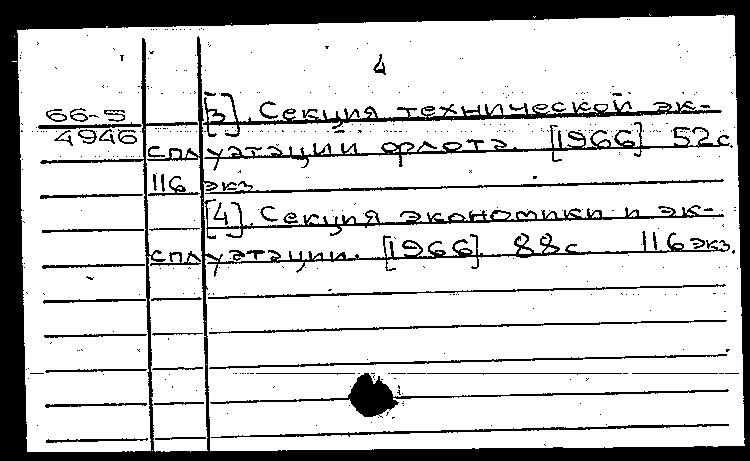 4
66-5 [3]. Секция технической эк-
4946 сплуатации флота. [1966] 52с.
116 экз.
[4]. Секция экономики и эк-
сплуатации. [1966]. 88с 116 экз.